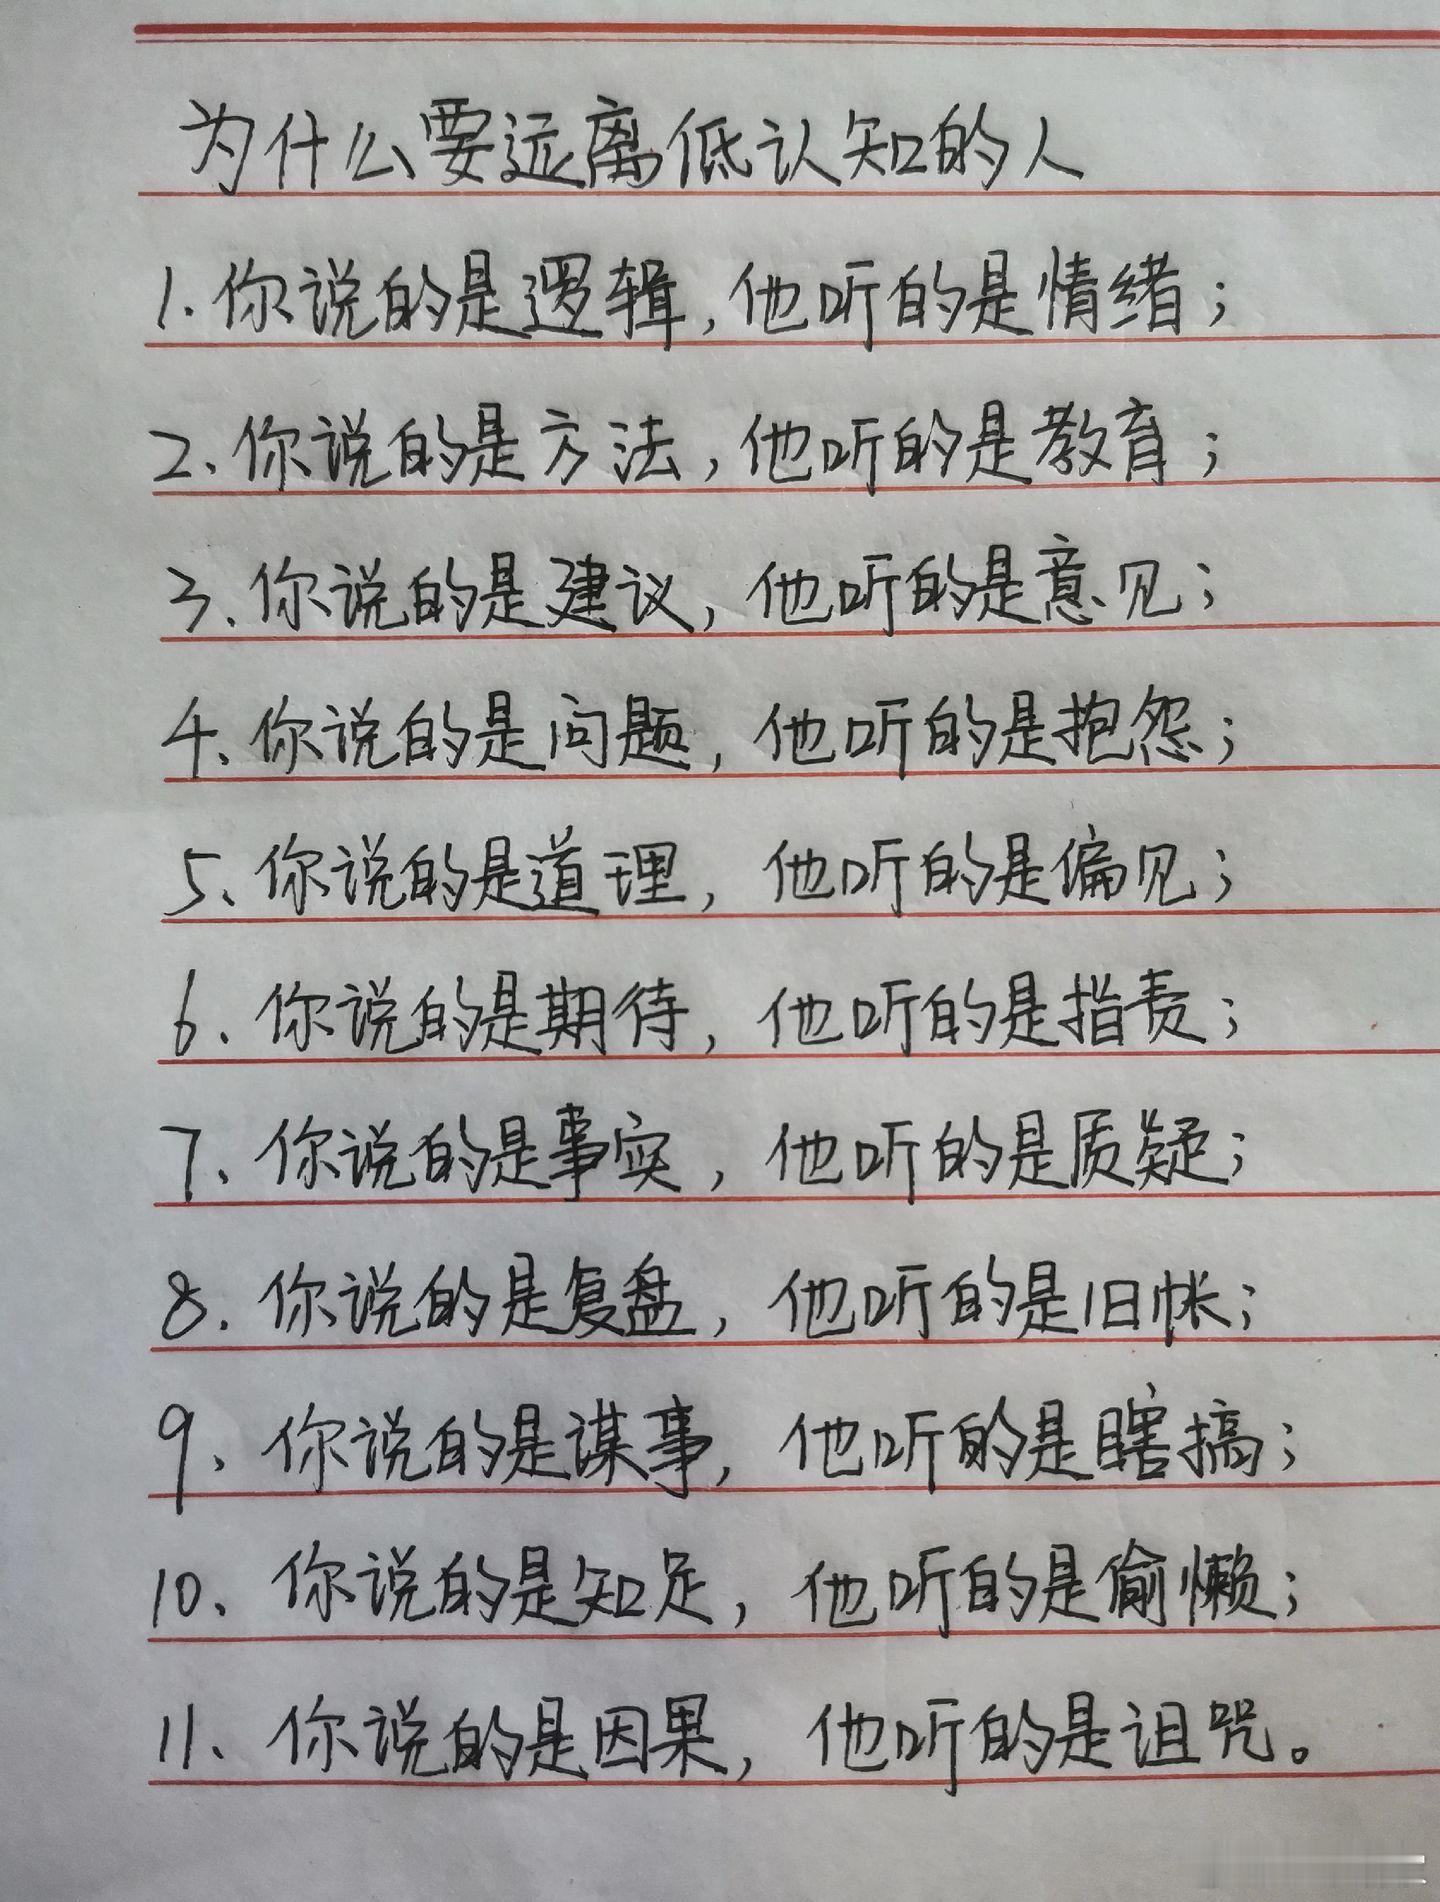 为什么要远离低认知的人
1.你说的是逻辑,他听的是情绪;
2、你说的是方法,他听的是教育;
3、你说的是建议,他听的是意见;
4、你说的是问题,他听的是抱怨;
5、你说的是道理,他听的是偏见;
6、你说的是期待,他听的是指责;
7、你说的是事实,他听的是质疑;
8.你说的是复盘,他听的是旧帐;
9、你说的是谋事,他听的是瞎搞;
10、你说的是知足,他听的是偷懒;
11、你说的是因果,他听的是诅咒。